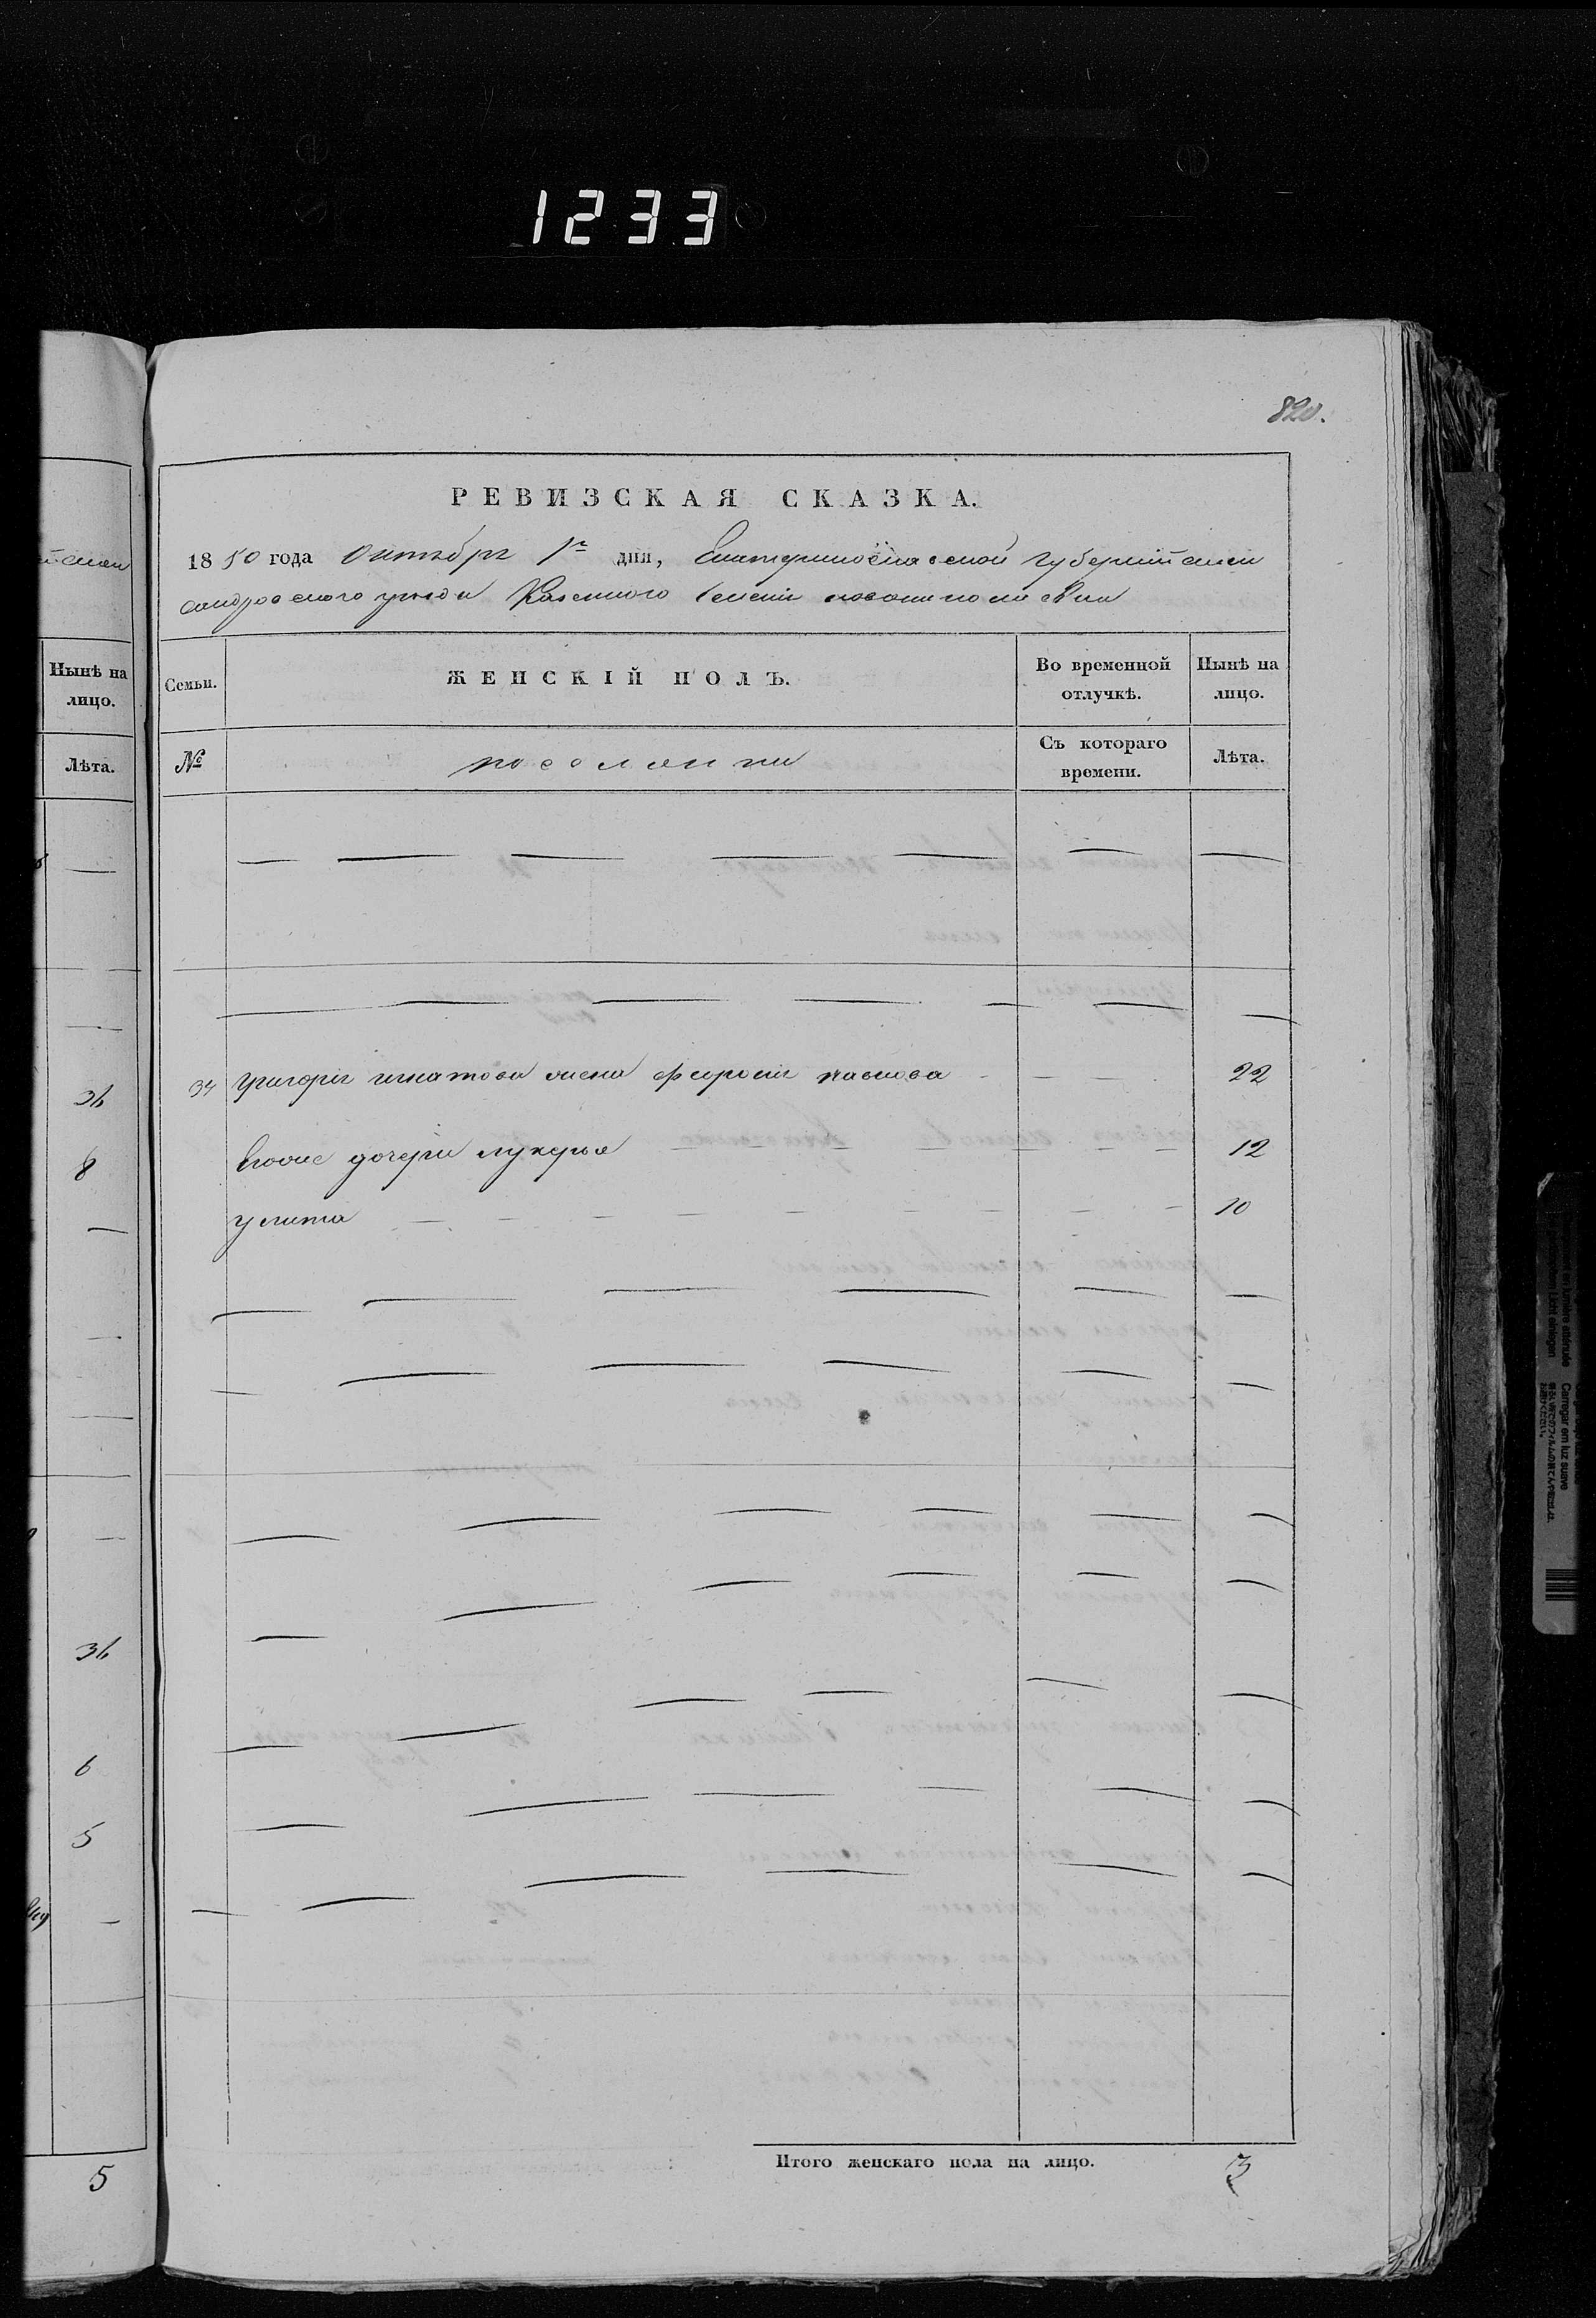 1233
820.
РЕВИЗСКАЯ СКАЗКА.
1850 года Октября 1го дня, Екатеринославской губернии алек
сандровского уезда Казенного Селения
Нынѣ на лицо.
Лѣта.
36
8
36
6
5
5
Семьи.
ЖЕНСКІЙ ПОЛЪ.
Во временной отлучкѣ.
Нынѣ на лицо.
№
поселянки
Съ котораго времени.
Лѣта.
34 григория игнатова жена феодосия павлова 22
дочери лукерья 12
улита 10
Итого женскаго пола на лицо. 3